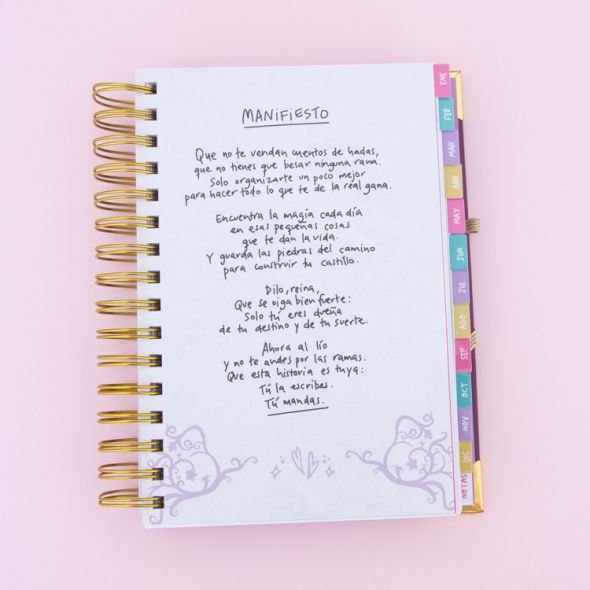 MANIFIESTO
Que no te vendan cuentos de hadas,
que no tienes que besar ninguna rana.
Solo organizarte un poco mejor
para hacer todo lo que te de la real gana.
Encuentra la magia cada día
en esas pequeñas cosas
que te dan la vida.
Y guarda las piedras del camino
para construir tu castillo.
Dilo, reina,
Que se oiga bien fuerte:
Solo tú eres dueña
de tu destino y de tu suerte.
Ahora al lío
y no te andes por las ramas.
Que esta historia es tuya:
Tú la escribes.
Tú mandas.
ENE
FEB
MAR
ABR
MAY
JUN
JUL
AGO
SEP
OCT
NOV
DIC
NOTAS